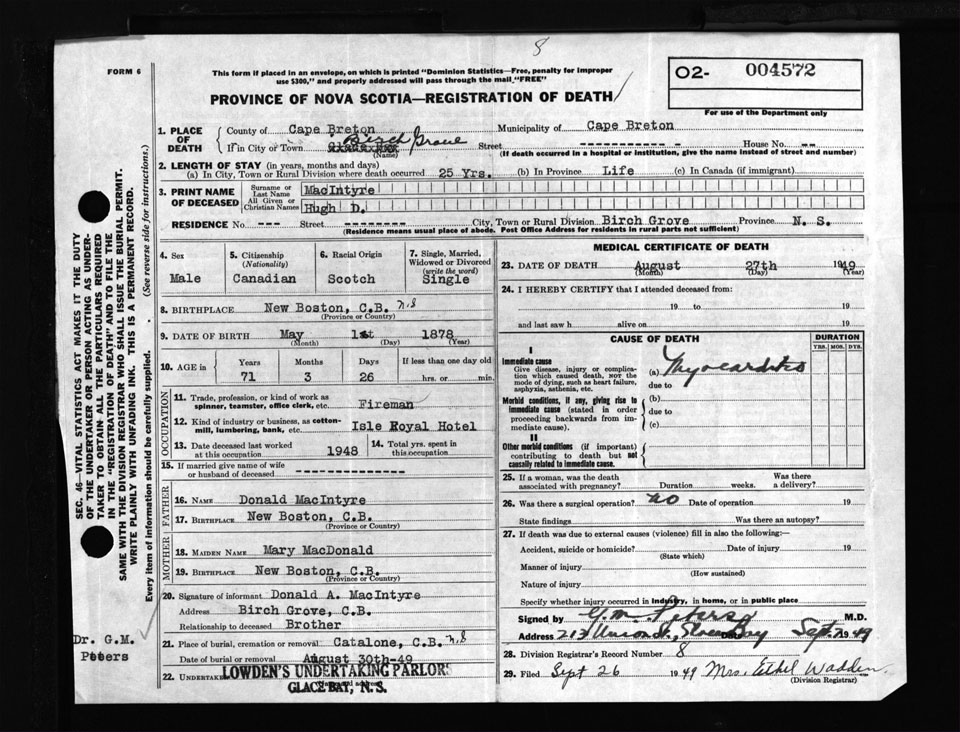 8
FORM 6
This form if placed in an envelope, on which is printed "Dominion Statistics—Free, penalty for improper
use $300," and properly addressed will pass through the mail "FREE"
PROVINCE OF NOVA SCOTIA—REGISTRATION OF DEATH
O2- 004572
For use of the Department only
1. PLACE OF DEATH
County of Cape Breton Municipality of Cape Breton
If in City or Town Birch Grove Street House No. --
(Name) (If death occurred in a hospital or institution, give the name instead of street and number)
2. LENGTH OF STAY (in years, months and days)
(a) In City, Town or Rural Division where death occurred 25 Yrs. (b) In Province Life (c) In Canada (if immigrant)
3. PRINT NAME OF DECEASED
Surname or Last Name MacIntyre
All Given or Christian Names Hugh D.
RESIDENCE No. --- Street City, Town or Rural Division Birch Grove Province N. S.
(Residence means usual place of abode. Post Office Address for residents in rural parts not sufficient)
4. Sex
Male
5. Citizenship
(Nationality)
Canadian
6. Racial Origin
Scotch
7. Single, Married,
Widowed or Divorced
(write the word)
Single
8. BIRTHPLACE New Boston, C.B. N.S
(Province or Country)
9. DATE OF BIRTH May 1st 1878
(Month) (Day) (Year)
10. AGE in
Years Months Days If less than one day old
71 3 26 hrs. or min.
OCCUPATION
11. Trade, profession, or kind of work as
spinner, teamster, office clerk, etc. Fireman
12. Kind of industry or business, as cotton-
mill, lumbering, bank, etc. Isle Royal Hotel
13. Date deceased last worked
at this occupation 1948
14. Total yrs. spent in
this occupation
15. If married give name of wife
or husband of deceased
FATHER
16. NAME Donald MacIntyre
17. BIRTHPLACE New Boston, C.B.
(Province or Country)
MOTHER
18. MAIDEN NAME Mary MacDonald
19. BIRTHPLACE New Boston, C.B.
(Province or Country)
20. Signature of informant Donald A. MacIntyre
Address Birch Grove, C.B.
Relationship to deceased Brother
21. Place of burial, cremation or removal Catalone, C.B. N.S
Date of burial or removal August 30th-49
22. UNDERTAKER LOWDEN'S UNDERTAKING PARLORS
GLACE BAY, N.S.
MEDICAL CERTIFICATE OF DEATH
23. DATE OF DEATH August 27th 1949
(Month) (Day) (Year)
24. I HEREBY CERTIFY that I attended deceased from:
19 to 19
and last saw h alive on 19
CAUSE OF DEATH
DURATION
YRS. MOS. DYS.
I
Immediate cause
Give disease, injury or complica-
tion which caused death, NOT the
mode of dying, such as heart failure,
asphyxia, asthenia, etc.
(a) Myocarditis
due to
Morbid conditions, if any, giving rise to
immediate cause (stated in order
proceeding backwards from im-
mediate cause).
(b)
due to
(c)
II
Other morbid conditions (if important)
contributing to death but not
causally related to immediate cause.
25. If a woman, was the death
associated with pregnancy? Duration weeks. Was there
a delivery?
26. Was there a surgical operation? no Date of operation 19
State findings Was there an autopsy?
27. If death was due to external causes (violence) fill in also the following:—
Accident, suicide or homicide? Date of injury 19
(State which)
Manner of injury
(How sustained)
Nature of injury
Specify whether injury occurred in industry, in home, or in public place
Signed by G.M. Peters M.D.
Address 213 Union St., Glace Bay Sept. 7 1949
28. Division Registrar's Record Number 8
29. Filed Sept 26 1949 Mrs. Ethel Wadden
(Division Registrar)
SEC. 46—VITAL STATISTICS ACT MAKES IT THE DUTY
OF THE UNDERTAKER OR PERSON ACTING AS UNDER-
TAKER TO OBTAIN ALL THE PARTICULARS REQUIRED
IN THE "REGISTRATION OF DEATH" AND TO FILE THE
SAME WITH THE DIVISION REGISTRAR WHO SHALL ISSUE THE BURIAL PERMIT.
WRITE PLAINLY WITH UNFADING INK. THIS IS A PERMANENT RECORD.
Every item of information should be carefully supplied. (See reverse side for instructions.)
Dr. G.M.
Peters